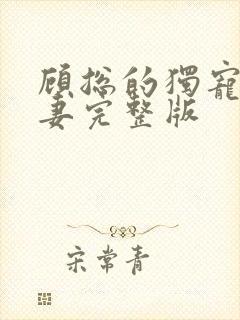 顾总的獨寵
妻完整版
宋常青